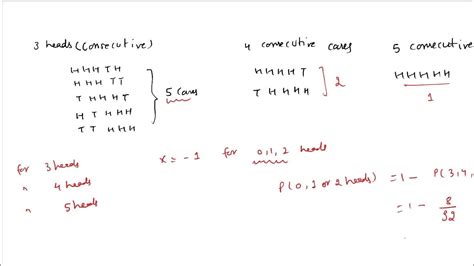 3 heads (Consecutive)
HHHTH
HHHTT
THHHT
HTHHH
TTHHH
5 Cases
4 consecutive cases
HHHHT
THHHH
2
5 consecutive
HHHHH
1
for 3 heads
" 4 heads
" 5 heads
x = -1 for 0,1,2 heads
P(0,1 or 2 heads) = 1 - P(3,4,
= 1 - 8/32